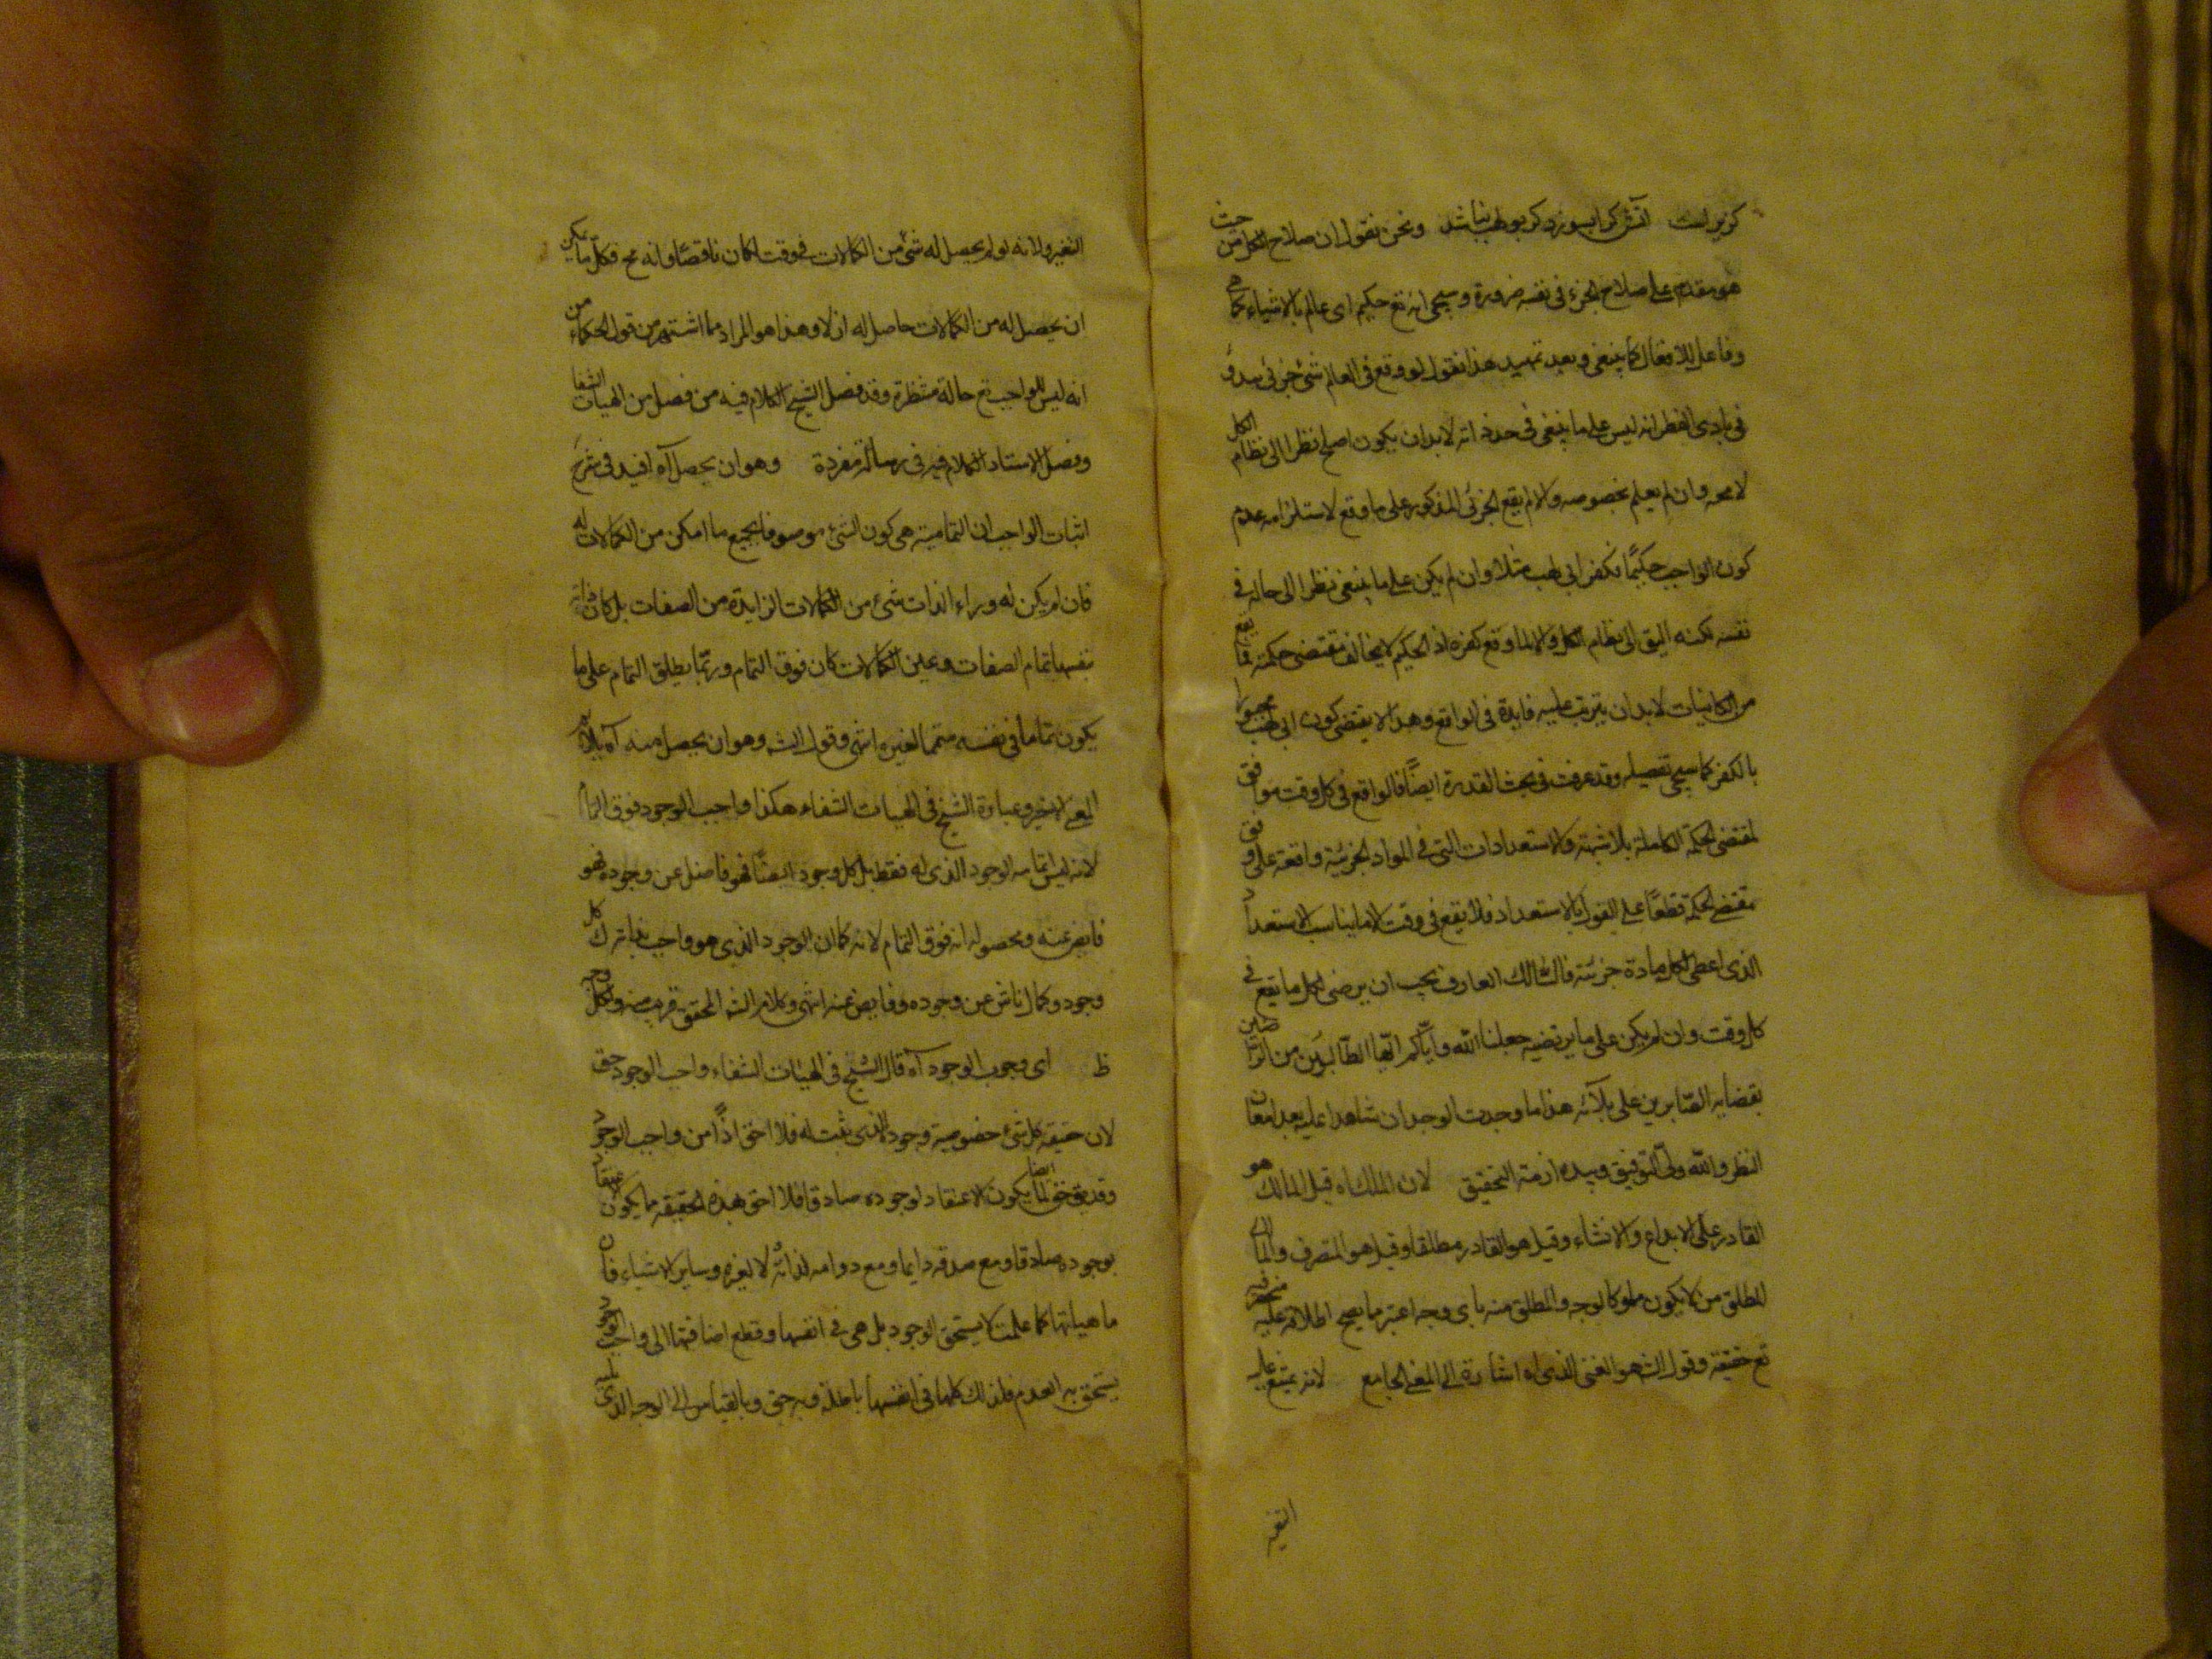 كزير است آتش كرا بسوزد كر بولهب نباشد ونحن نقول ان صلاح الكل من حيث
هو مقدم على صلاح الجزء فى نفسه ضرورة وسيجئ انه تع حكيم اى عالم بالاشياء كما هى
وفاعل للافعال كما ينبغى وبعد تمهيد هذا نقول لو وقع فى العالم شئ جزئى يبدو
فى بادى النظر انه ليس على ما ينبغى فى حد ذاته لا بد ان يكون اصلح نظرا الى نظام الكل
لا محه وان لم يعلم بخصوصه والا لم يقع الجزئى المذكور على ما وقع لاستلزامه عدم
كون الواجب حكيمًا فكفر ابى لهب مثلا وان لم يكن على ما ينبغى نظرا الى حاله فى
نفسه لكنه اليق الى نظام الكل والا لما وقع كفره اذ الحكيم لا يخالف مقتضى حكمته فما يقع
من الكاينات لا بد ان يترتب عليه فايدة فى الواقع وهذا لا يقتضى كون ابى لهب مجبورا
بالكفر كما سيجئ تفصيله وقد عرفت فى بحث القدرة ايضًا فالواقع فى كل وقت موافق
لمقتضى الحكمة الكاملة بلا شبهة والاستعدادات التى فى المواد الجزئية واقعة على وفق
مقتضى الحكمة قطعًا على القول بالاستعداد فلا يقع فى وقت الا ما يناسب الاستعداد
الذى اعطى لكل مادة جزئية فالسالك العارف يجب ان يرضى لكل ما يقع فى
كل وقت وان لم يكن على ما يرتضيه جعلنا الله واياكم ايها الطالبين من الراضين
بقضايه الصابرين على بلائه هذا ما وجدت الوجدان شاهدا عليه بعد امعان
النظر والله ولى التوفيق وبيده ازمة التحقيق لان الملك اه قيل المالك هو
القادر على الابداع والانشاء وقيل هو القادر مطلقا وقيل هو المتصرف والمالك
المطلق من لا يكون مملوكا لوجه والمطلق منه باى وجه اعتبر ما يصح اطلاقه عليه منحصر فيه
تع حقيقة وقول الشه هو الغنى الذى اه اشارة الى المعنى الجامع لانه يمتنع عليه
التغير
التغير ولانه لو لم يحصل له شئ من الكمالات فى وقت لكان ناقصًا وانه مح فكل ما يمكن
ان يحصل له من الكمالات حاصل له ازلا وهذا هو المراد مما اشتهر من قول الحكماء من
انه ليس للواجب تع حالة منتظرة وقد فصل الشيخ الكلام فيه من فصل من الهيات الشفا
وفصل الاستاد الكلام فيه فى رسالة مفردة وهو ان يحصل اه افيد فى شرح
اثبات الواجب ان التمامية هى كون الشئ موصوفا بجميع ما امكن من الكمالات له
فان لم يكن له وراء الذات شئ من الكمالات الزايدة من الصفات بل كان ذاته
بنفسها تمام الصفات وعين الكمالات كان فوق التمام وربما يطلق التمام على ما
يكون تماما فى نفسه متمما لغيره انتهى وقول الشه وهو ان يحصل منه اه يلايم
المعنى الاخير وعبارة الشيخ فى الهيات الشفاء هكذا واجب الوجود فوق التمام
لانه ليس انما له الوجود الذى له فقط بل كل وجود ايضًا فهو فاضل عن وجوده فهو
فايض عنه ومحصوله انه فوق التمام لانه كما ان الوجود الذى هو واجب بذاته كل
وجود وكمال ناش عن وجوده وفايض عنه انتهى وكلام الشه المحقق قريب منه ولكل وجه
ظ اى وجوب الوجود اه قال الشيخ فى الهيات الشفاء واجب الوجود حق
لان حقيقة كل شئ خصوصية وجوده الذى يثبت له فلا احق اذًا من واجب الوجود
وقد يق حق ايضا لما يكون الاعتقاد لوجوده صادقا فلا احق بهذه الحقيقة مما يكون اعتقاد
بوجوده صادقا ومع صدقه دايما ومع دوامه لذاته لا لغيره وساير الاشياء فان
ماهياتها كما علمت لا يستحق الوجود بل هى فى انفسها وقطع اضافتها الى واجب الوجود
يستحق به العدم فلذلك كلها فى انفسها باطلة وبه حق وبالقياس الى الوجه الذى يليه